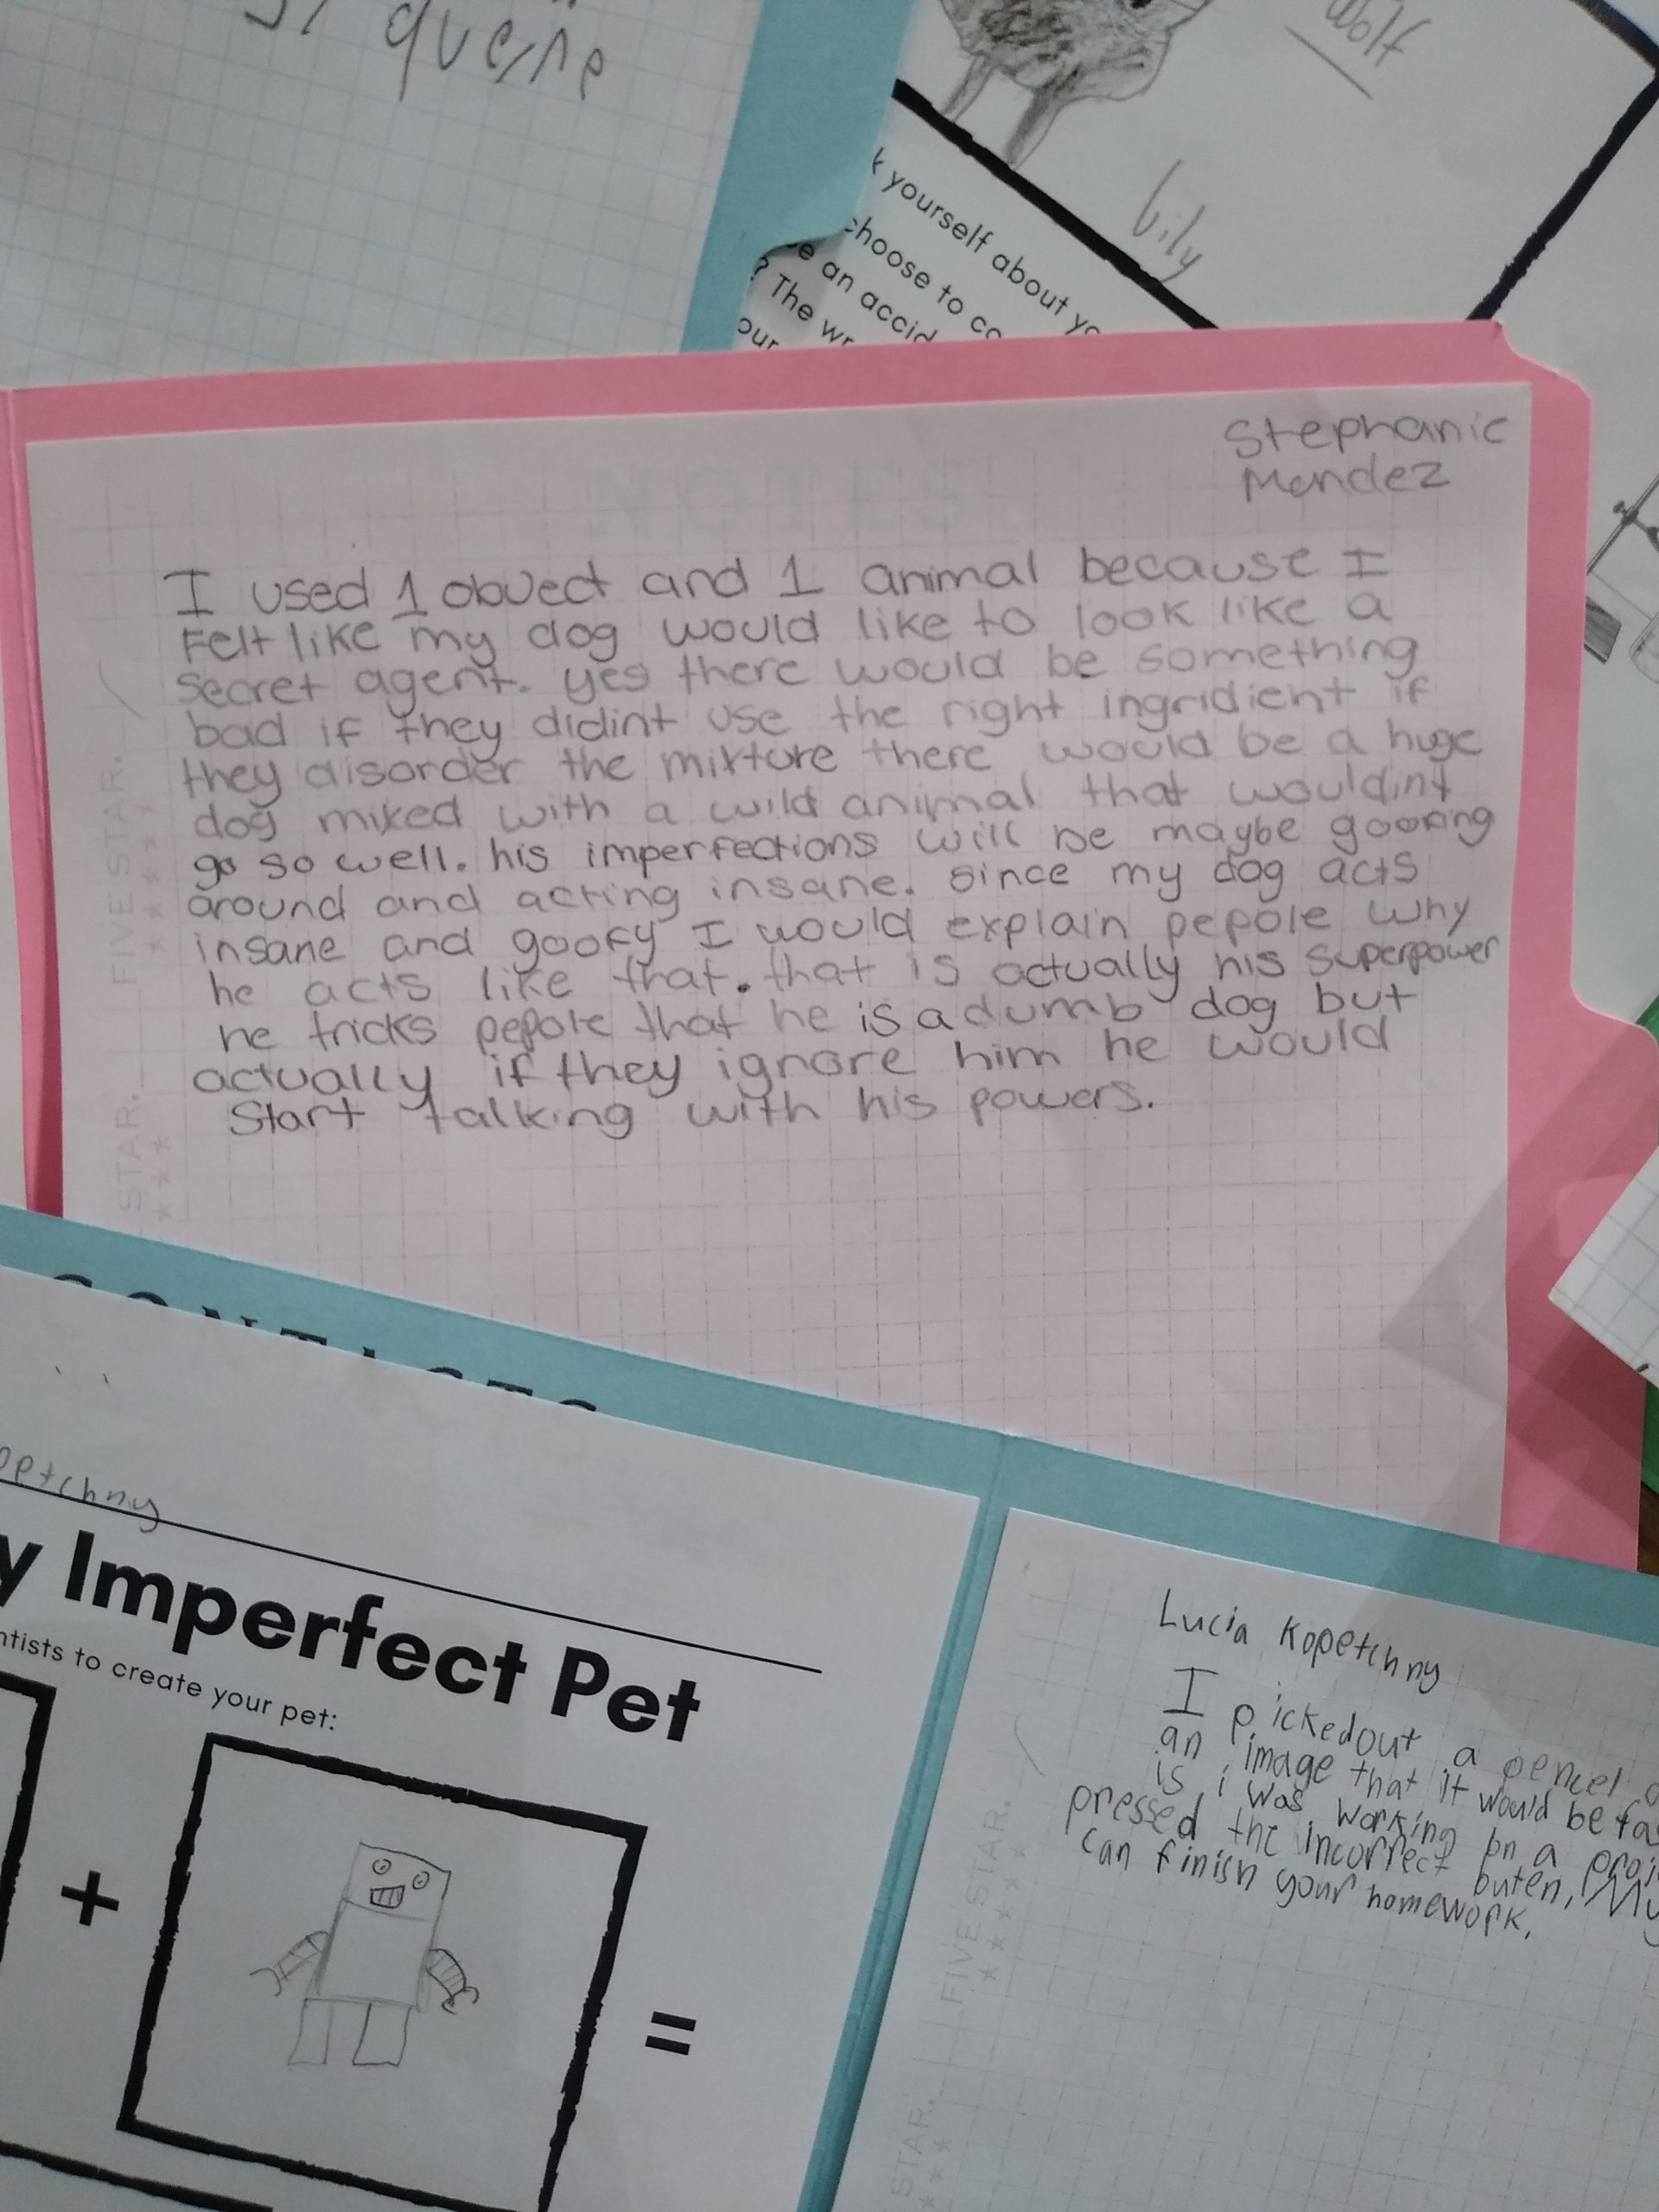 queire
Wolf
bily
k yourself about yo
choose to co
e an accid
? The wr
our
NOTES
Stephanie
Mendez
I used 1 obuect and 1 animal because I
Felt like my dog would like to look like a
secret agent. yes there would be something
bad if they didint use the right ingridient if
they disorder the mixture there would be a huge
dog mixed with a wild animal that wouldint
go so well. his imperfections will be maybe goofing
around and acting insane. Since my dog acts
insane and goofy I would explain pepole why
he acts like that. that is actually his superpower
he tricks pepole that he is a dumb dog but
actually if they ignore him he would
Start talking with his powers.
FIVE STAR.
STAR.
CONTACTS
opetchny
y Imperfect Pet
ntists to create your pet:
+
=
Lucia Kopetchny
I picked out a pencel
an image that it would be fa
is i was working on a proj
pressed the incorrect buten, My
can finish your homework.
FIVE STAR.
STAR.